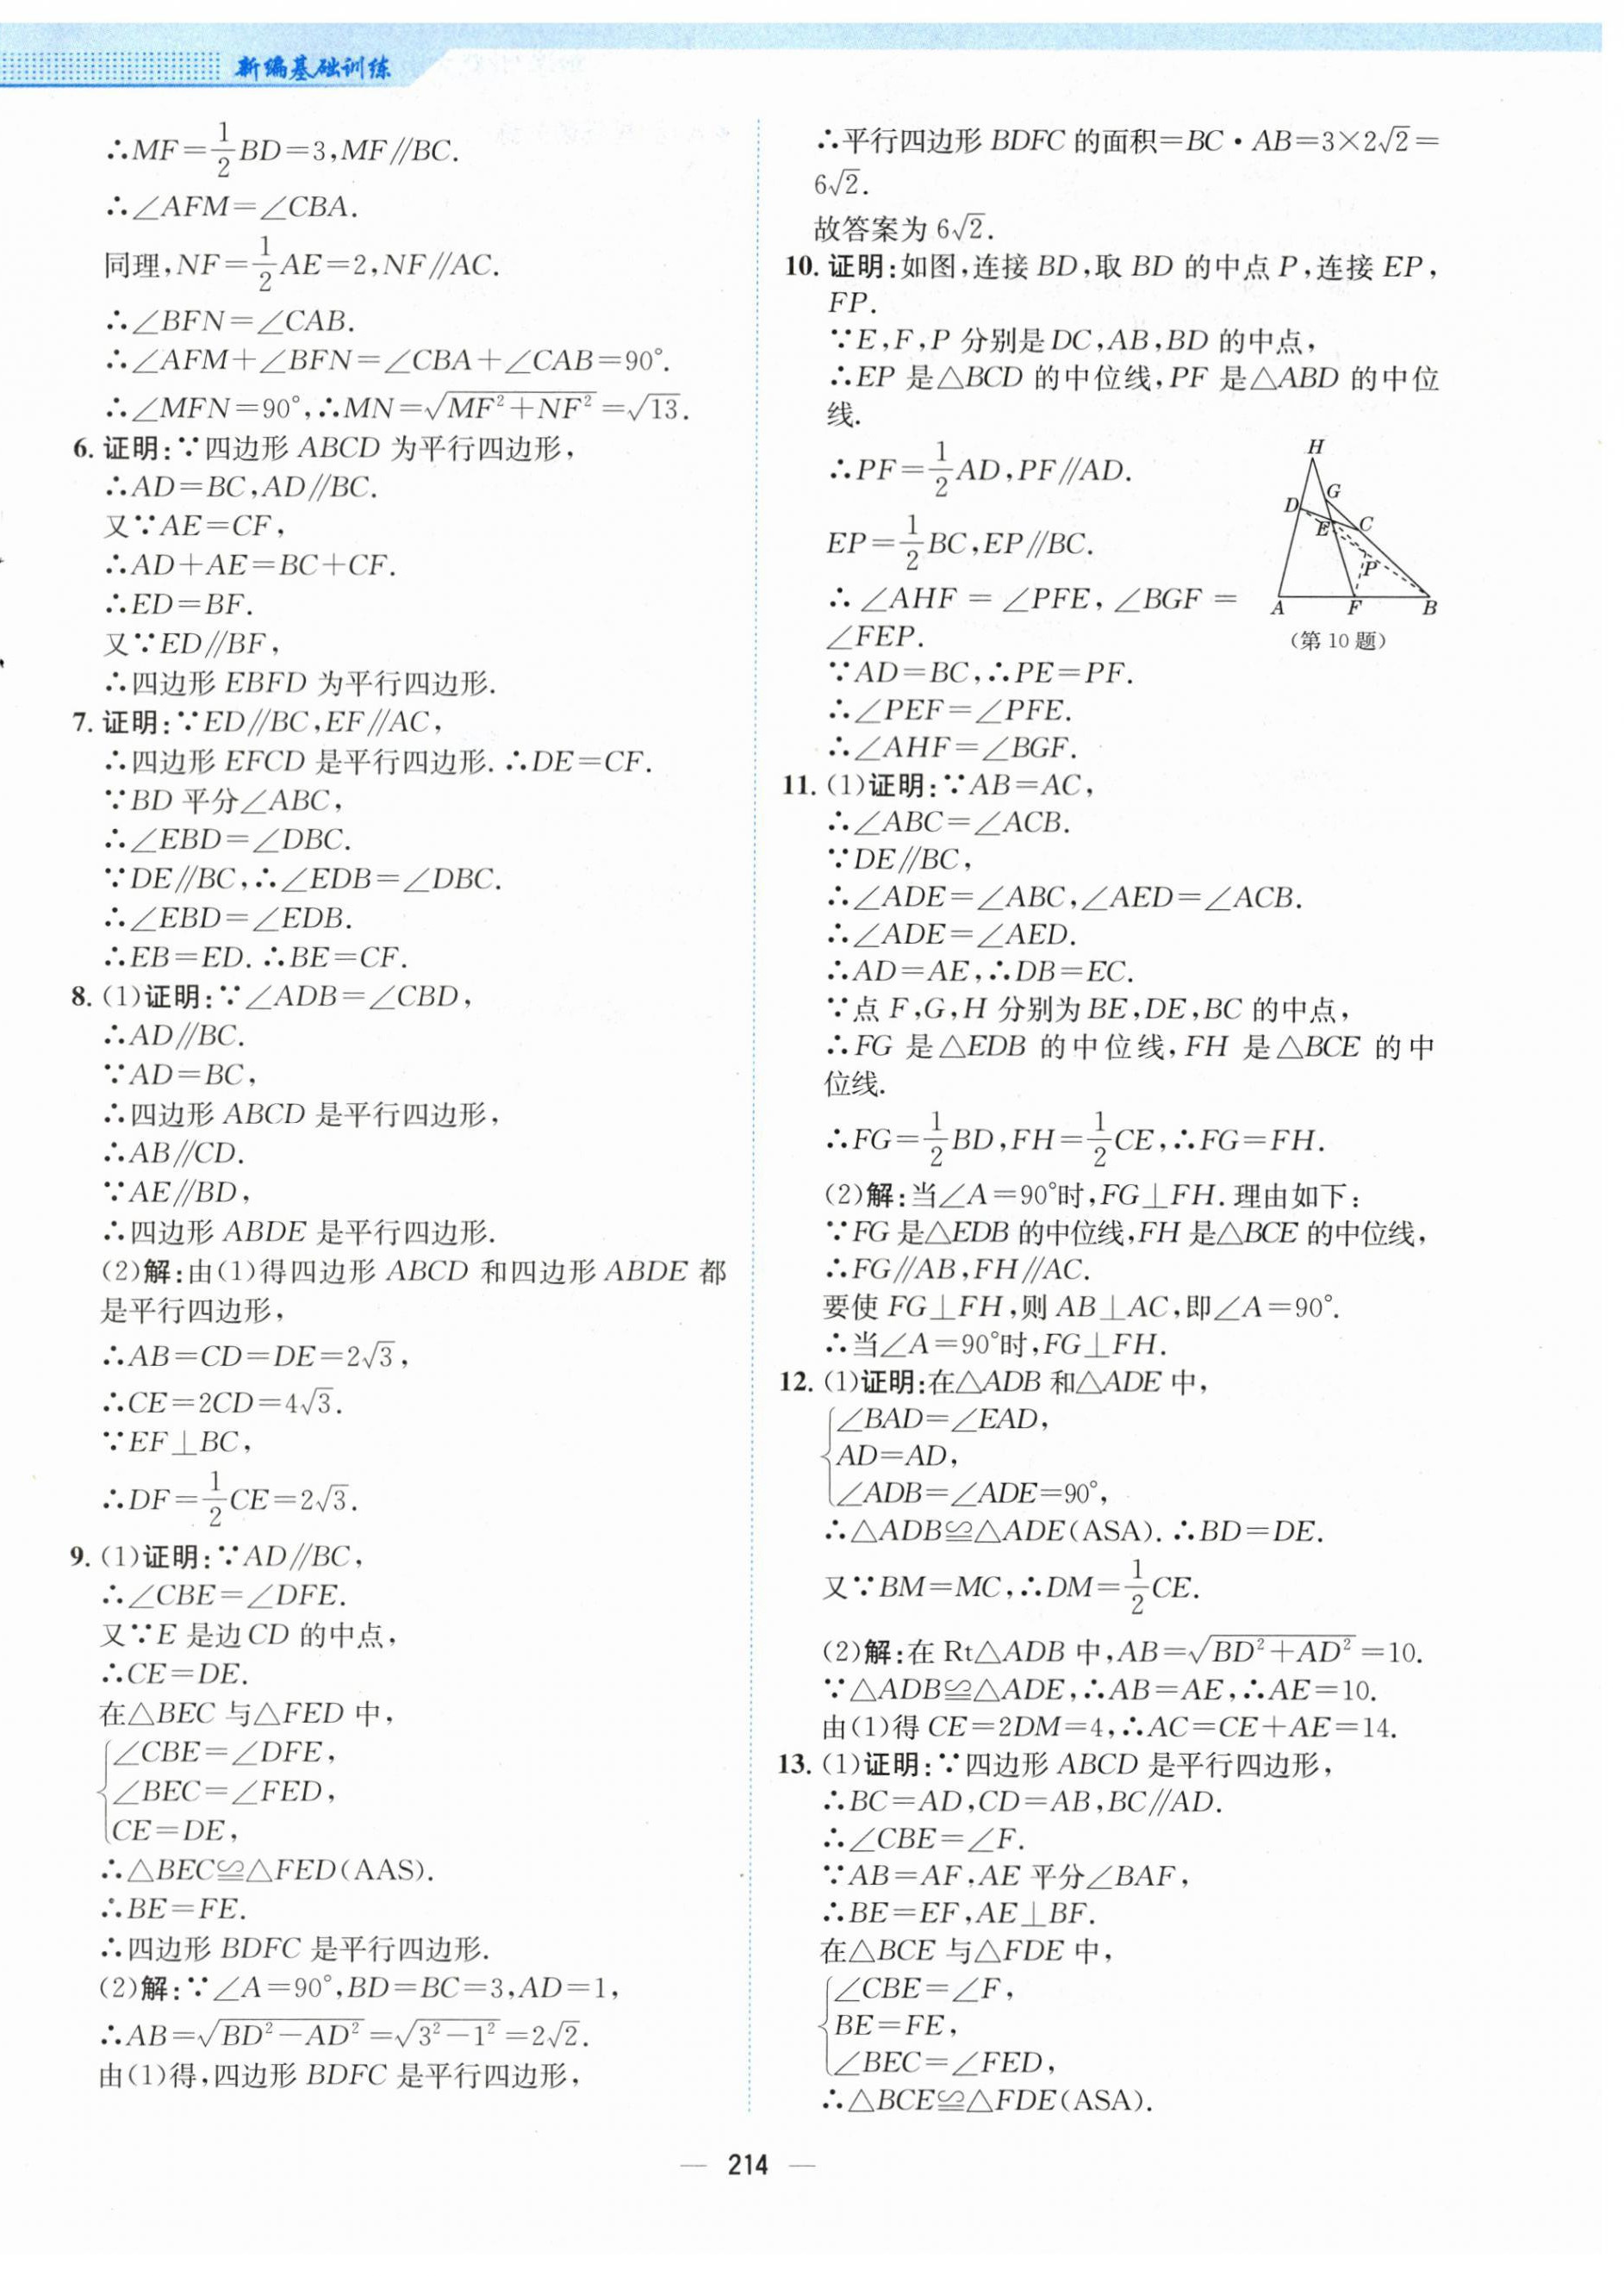 新编基础训练
∴MF=1/2BD=3,MF∥BC.
∴∠AFM=∠CBA.
同理,NF=1/2AE=2,NF∥AC.
∴∠BFN=∠CAB.
∴∠AFM+∠BFN=∠CBA+∠CAB=90°.
∴∠MFN=90°,∴MN=√(MF²+NF²)=√13.
6. 证明:∵四边形 ABCD 为平行四边形,
∴AD=BC,AD∥BC.
又∵AE=CF,
∴AD+AE=BC+CF.
∴ED=BF.
又∵ED∥BF,
∴四边形 EBFD 为平行四边形.
7. 证明:∵ED∥BC,EF∥AC,
∴四边形 EFCD 是平行四边形.∴DE=CF.
∵BD 平分∠ABC,
∴∠EBD=∠DBC.
∵DE∥BC,∴∠EDB=∠DBC.
∴∠EBD=∠EDB.
∴EB=ED.∴BE=CF.
8. (1)证明:∵∠ADB=∠CBD,
∴AD∥BC.
∵AD=BC,
∴四边形 ABCD 是平行四边形,
∴AB∥CD.
∵AE∥BD,
∴四边形 ABDE 是平行四边形.
(2)解:由(1)得四边形 ABCD 和四边形 ABDE 都
是平行四边形,
∴AB=CD=DE=2√3,
∴CE=2CD=4√3.
∵EF⊥BC,
∴DF=1/2CE=2√3.
9. (1)证明:∵AD∥BC,
∴∠CBE=∠DFE.
又∵E 是边 CD 的中点,
∴CE=DE.
在△BEC 与△FED 中,
∠CBE=∠DFE,
∠BEC=∠FED,
CE=DE,
∴△BEC≌△FED(AAS).
∴BE=FE.
∴四边形 BDFC 是平行四边形.
(2)解:∵∠A=90°,BD=BC=3,AD=1,
∴AB=√(BD²-AD²)=√(3²-1²)=2√2.
由(1)得,四边形 BDFC 是平行四边形,
∴平行四边形 BDFC 的面积=BC·AB=3×2√2=
6√2.
故答案为 6√2.
10. 证明:如图,连接 BD,取 BD 的中点 P,连接 EP,
FP.
∵E,F,P 分别是 DC,AB,BD 的中点,
∴EP 是△BCD 的中位线,PF 是△ABD 的中位
线.
∴PF=1/2AD,PF∥AD.
EP=1/2BC,EP∥BC.
∴∠AHF=∠PFE,∠BGF=
∠FEP.
H
G
D
E
C
P
A
F
B
(第 10 题)
∵AD=BC,∴PE=PF.
∴∠PEF=∠PFE.
∴∠AHF=∠BGF.
11. (1)证明:∵AB=AC,
∴∠ABC=∠ACB.
∵DE∥BC,
∴∠ADE=∠ABC,∠AED=∠ACB.
∴∠ADE=∠AED.
∴AD=AE,∴DB=EC.
∵点 F,G,H 分别为 BE,DE,BC 的中点,
∴FG 是△EDB 的中位线,FH 是△BCE 的中
位线.
∴FG=1/2BD,FH=1/2CE,∴FG=FH.
(2)解:当∠A=90°时,FG⊥FH.理由如下:
∵FG 是△EDB 的中位线,FH 是△BCE 的中位线,
∴FG∥AB,FH∥AC.
要使 FG⊥FH,则 AB⊥AC,即∠A=90°.
∴当∠A=90°时,FG⊥FH.
12. (1)证明:在△ADB 和△ADE 中,
∠BAD=∠EAD,
AD=AD,
∠ADB=∠ADE=90°,
∴△ADB≌△ADE(ASA).∴BD=DE.
又∵BM=MC,∴DM=1/2CE.
(2)解:在 Rt△ADB 中,AB=√(BD²+AD²)=10.
∵△ADB≌△ADE,∴AB=AE,∴AE=10.
由(1)得 CE=2DM=4,∴AC=CE+AE=14.
13. (1)证明:∵四边形 ABCD 是平行四边形,
∴BC=AD,CD=AB,BC∥AD.
∴∠CBE=∠F.
∵AB=AF,AE 平分∠BAF,
∴BE=EF,AE⊥BF.
在△BCE 与△FDE 中,
∠CBE=∠F,
BE=FE,
∠BEC=∠FED,
∴△BCE≌△FDE(ASA).
— 214 —